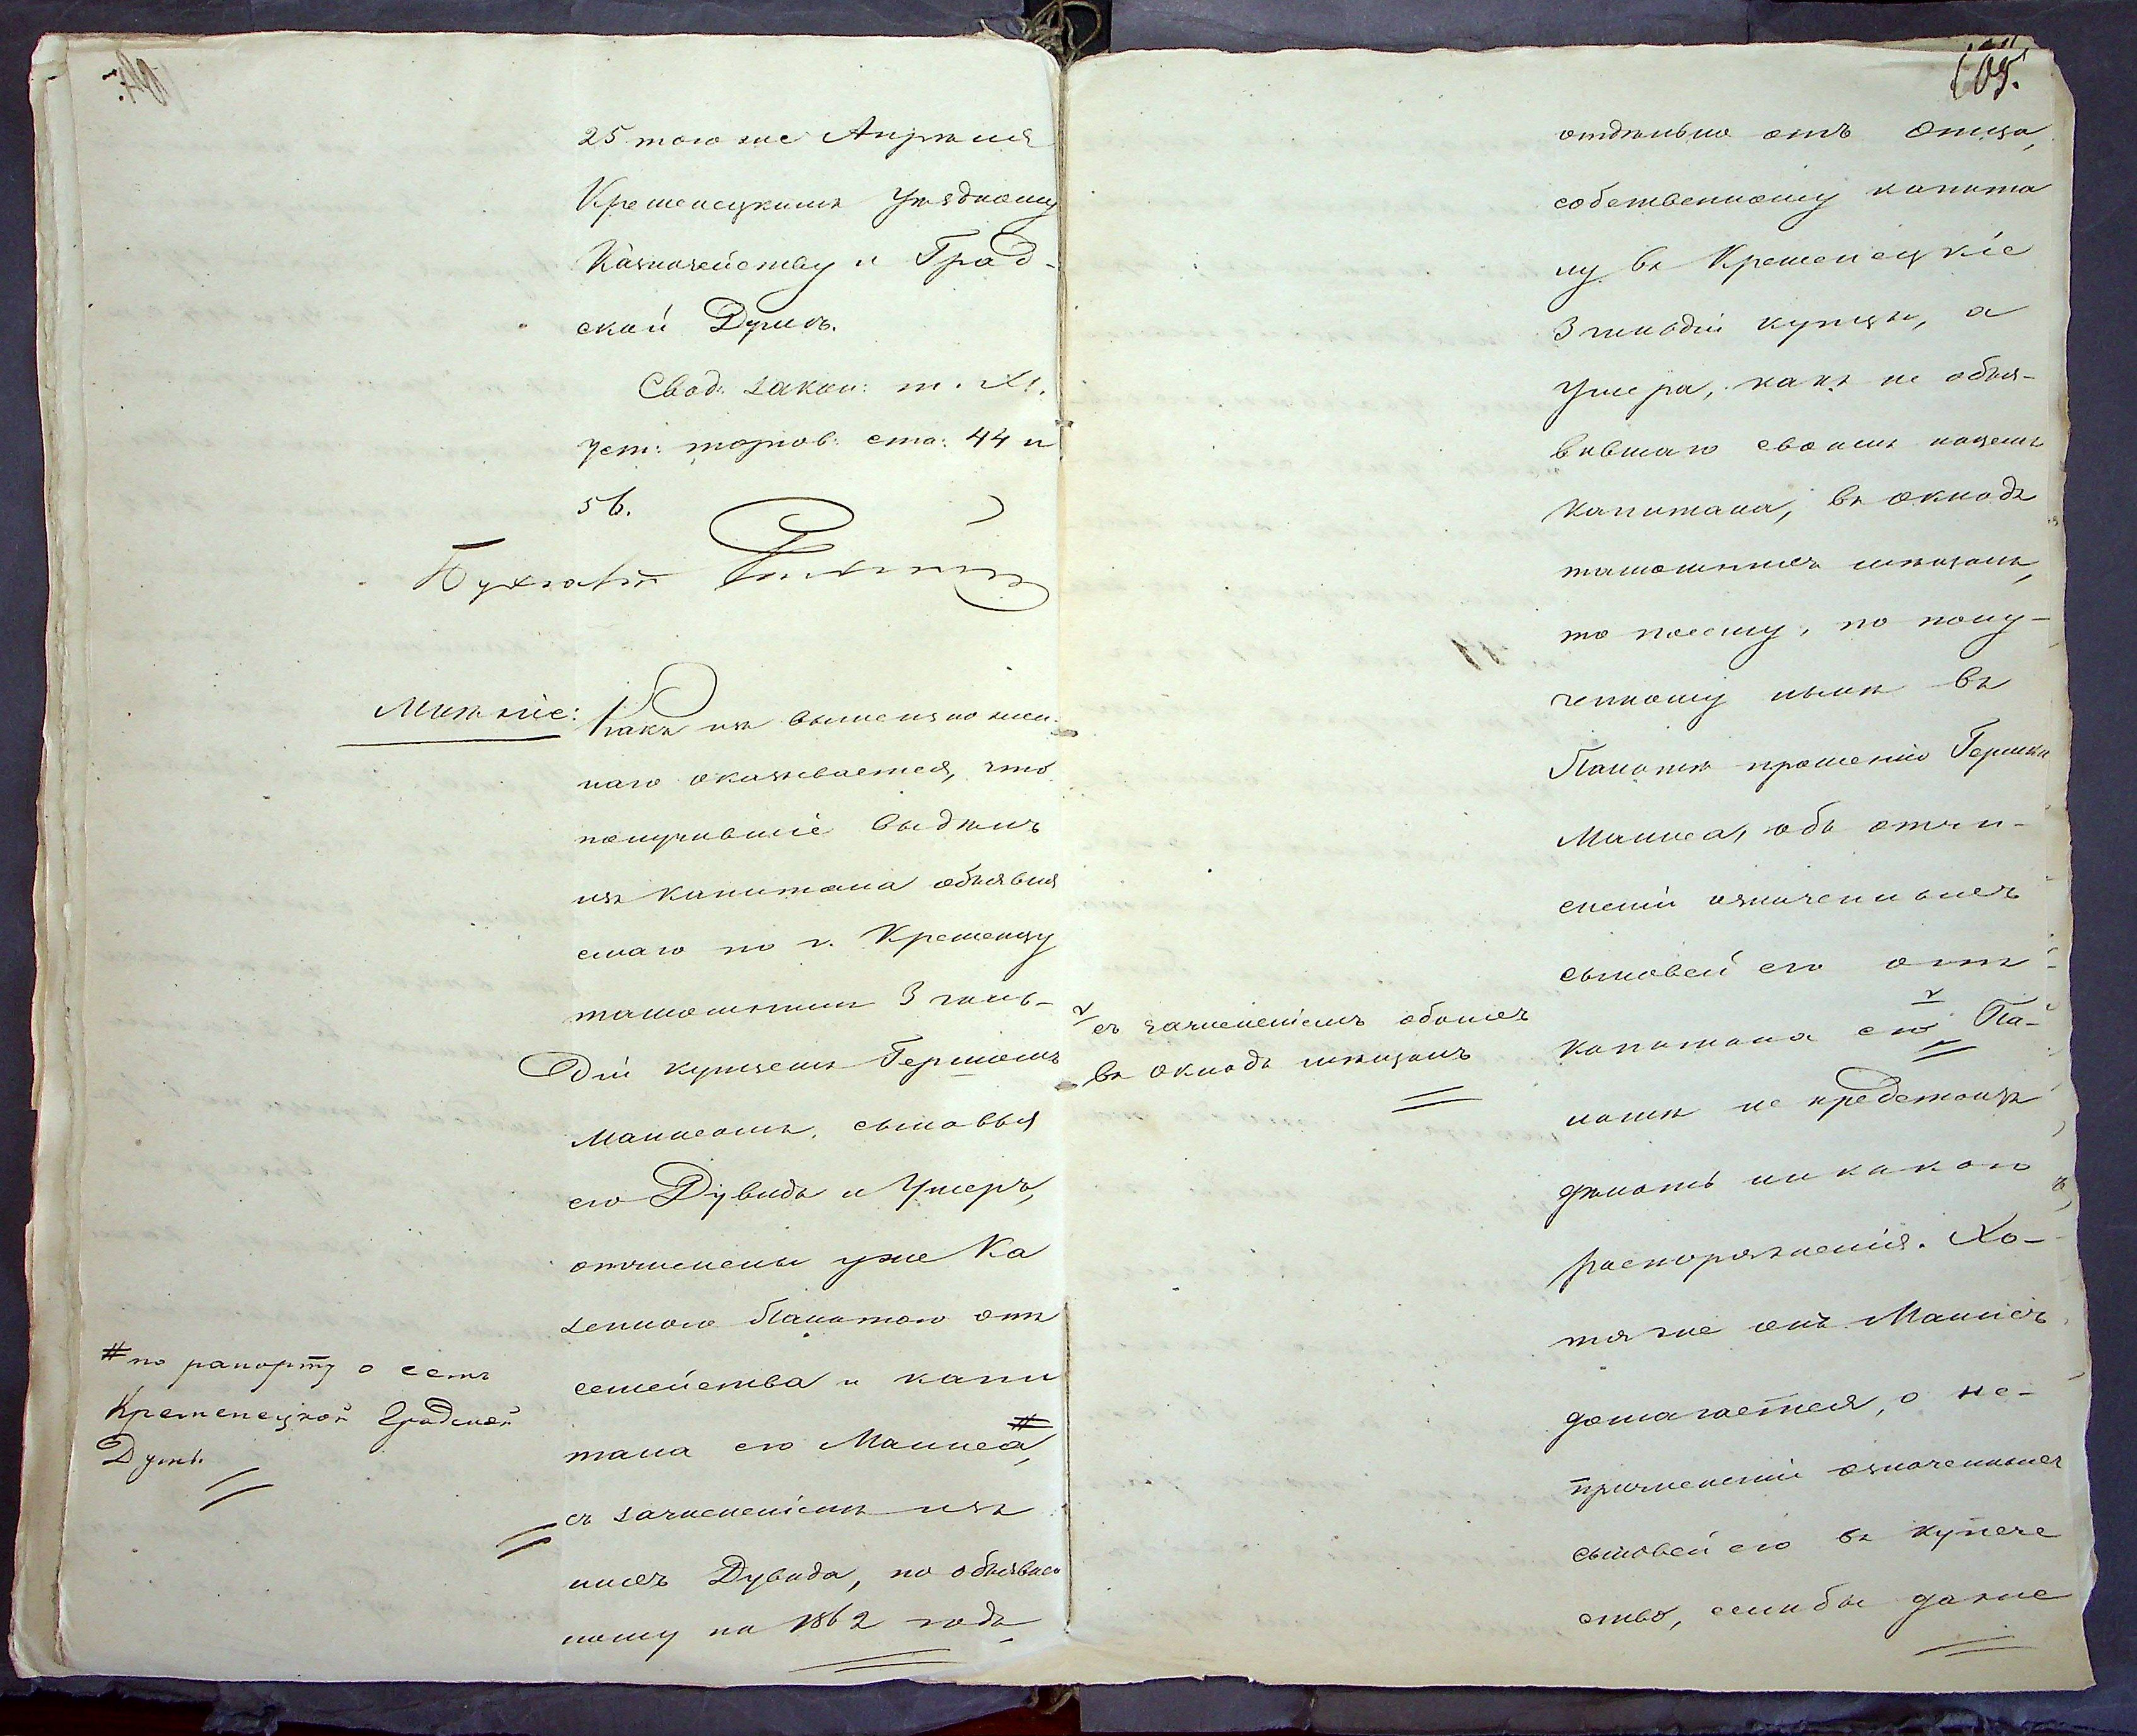 25 того же Апрѣля
Кременецкимъ Уѣздному
Казначейству и Град-
ской Думѣ.
Свод: закон: т. XI.
уст: торгов: ста: 44 и
56.
Бухгалт
Мнѣніе: Какъ изъ вышеизложен-
наго оказывается, что
получившіе выдѣлъ
изъ капитала объявля
емаго по г. Кременцу
тамошнимъ 3 гиль-
діи купцемъ Гершомъ
Маннесомъ, сыновья
его Дувидъ и Ушеръ,
отчислены уже Ка
зенною Палатою отъ
семейства и капи
тала его Маннеса, #
съ зачисленіемъ изъ
нихъ Дувида, по объявлен
ному на 1862 годъ
# по рапорту о семъ
Кременецкой Градской
Думы.
105.
отдѣльно отъ Отца,
собственному капита
лу въ Кременецкіе
3 гильдіи купцы, а
Ушера, какъ не объя-
вившаго своимъ лицемъ
капитала, въ окладъ
тамошнихъ мѣщанъ,
то посему, по полу-
ченному нынѣ въ
Палатѣ прошенію Гершки
Маннеса, объ отчи-
сленіи означенныхъ
сыновей его отъ
капитала его √ Па-
латѣ не предстоитъ
дѣлать никакого
распоряженія. Хо-
тя же онъ Маннесъ
домагается, о не-
причисленіи означенныхъ
сыновей его въ купече
ство, если бы даже
√ съ зачисленіемъ обоихъ
въ окладъ мѣщанъ